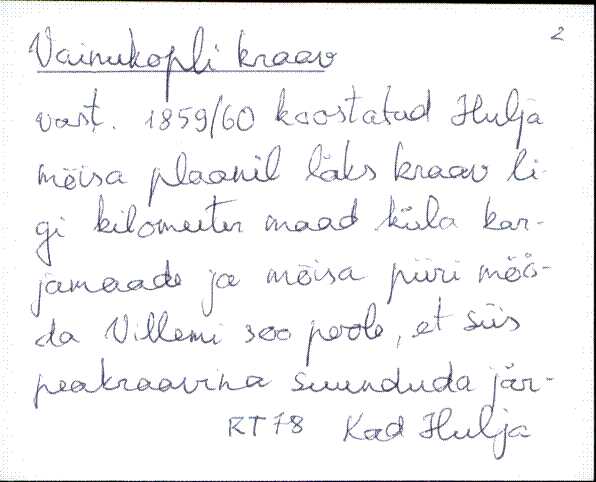 2
Vainukopli kraav
vast. 1859/60 koostatud Hulja
mõisa plaanil läks kraav li-
gi kilomeeter maad küla kar-
jamaade ja mõisa piiri möö-
da Villemi soo poole, et siis
peakraavina suunduda jär-
RT 78 Kad Hulja